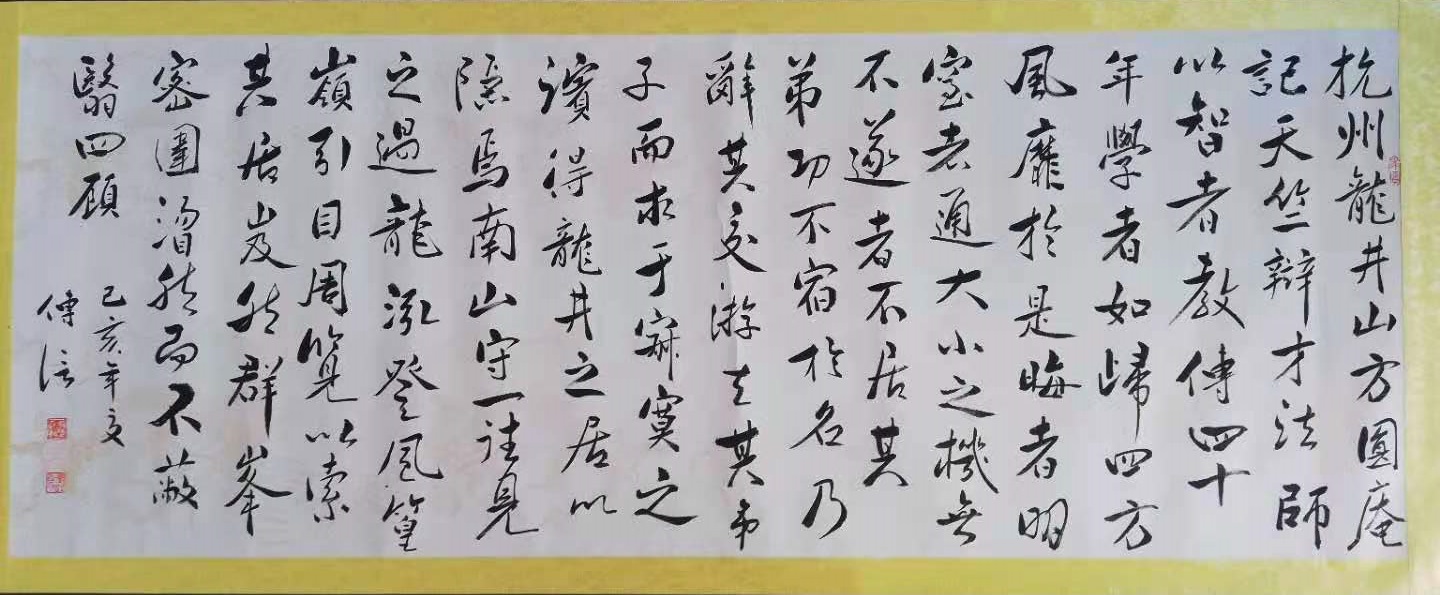 杭州龍井山方圓庵
記天竺辯才法師
以智者教傳四十
年學者如歸四方
風靡於是晦者明
窒者通大小之機無
不遂者不居其
功不宿於名乃
辭其交游去其弟
子而求于寂寞之
濱得龍井之居以
隱焉南山守一往見
之過龍泓登風篁
嶺引目周覽以索
其居岌然群峯
密圍溜然而不蔽
翳四顧
己亥年文
傳信